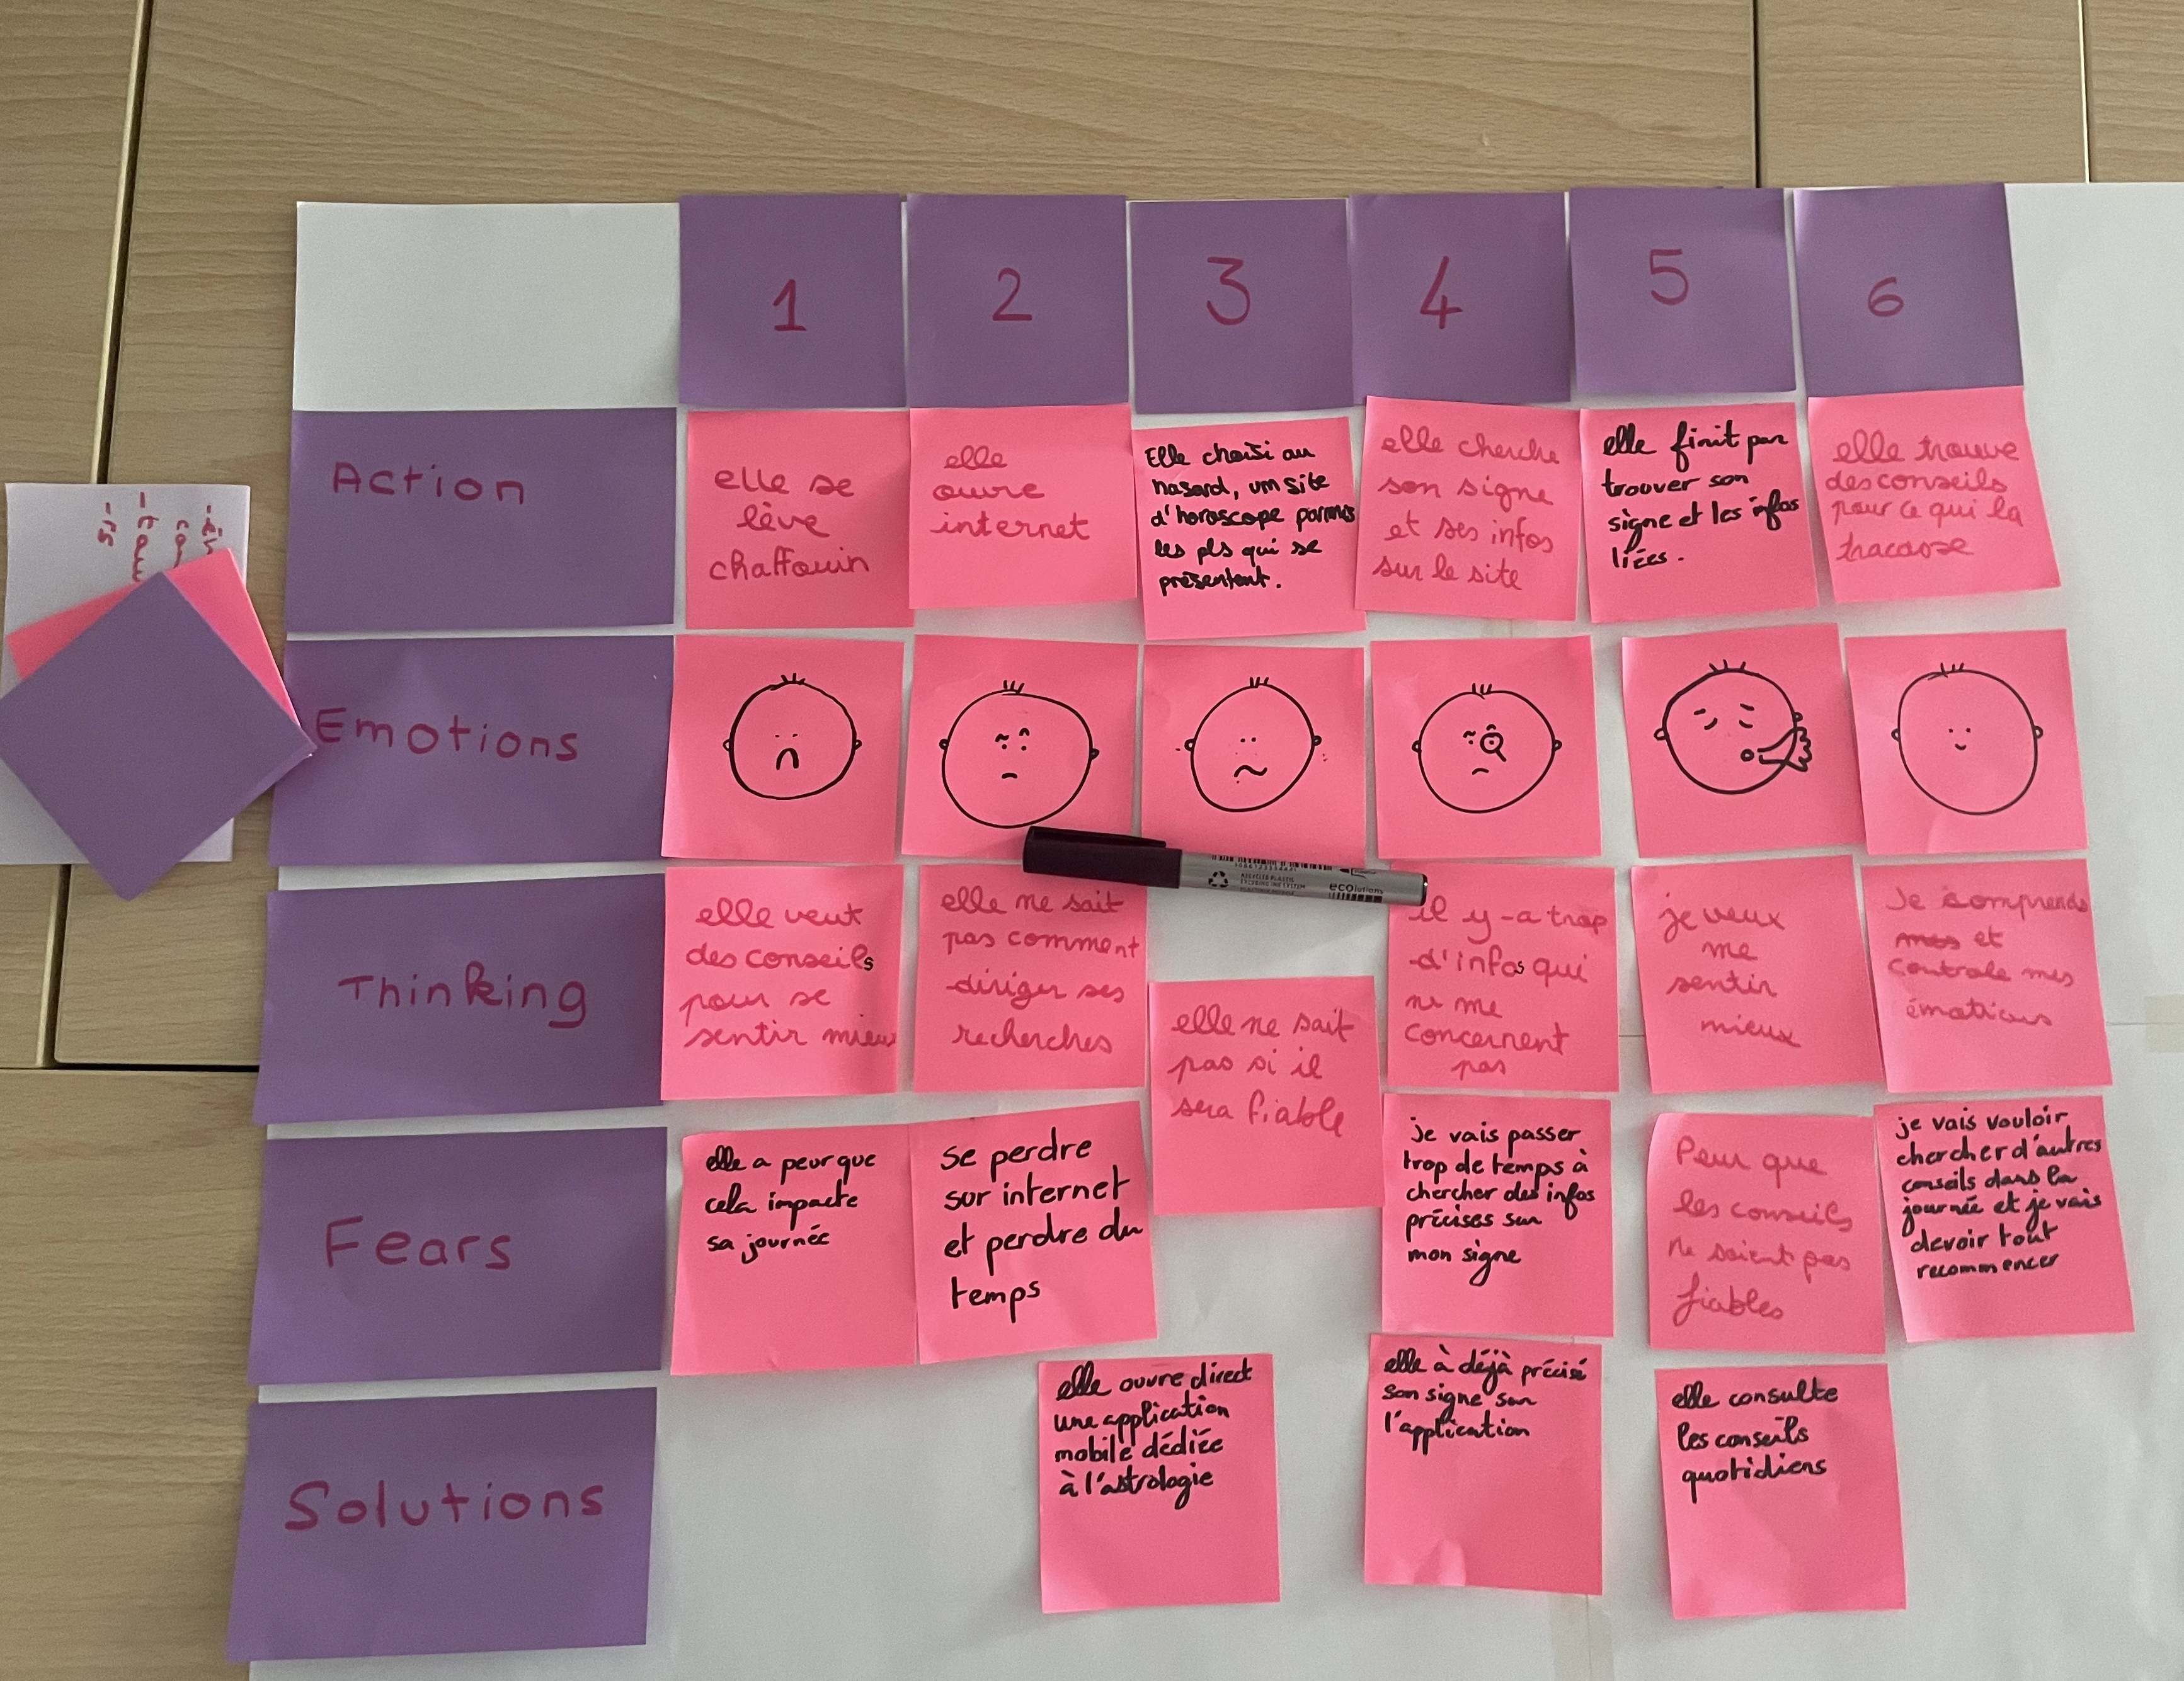 1
2
3
4
5
6
Action
elle se
lève
chaffouin
elle
ouvre
internet
Elle choisi au
hasard, um site
d'horoscope parmis
les pls qui se
présentent.
elle cherche
son signe
et ses infos
sur le site
elle finit par
trouver son
signe et les infos
liées.
elle trouve
des conseils
pour ce qui la
tracasse
Emotions
Thinking
elle veut
des conseils
pour se
sentir mieux
elle ne sait
pas comment
diriger ses
recherches
elle ne sait
pas si il
sera fiable
il y-a trop
d'infos qui
ne me
concernent
pas
je veux
me
sentir
mieux
Je comprends
et
controle mes
émotions
Fears
elle a peur que
cela impacte
sa journée
se perdre
sur internet
et perdre du
temps
je vais passer
trop de temps à
chercher des infos
précises sur
mon signe
Peur que
les conseils
ne soient pas
fiables
je vais vouloir
chercher d'autres
conseils dans la
journée et je vais
devoir tout
recommencer
Solutions
elle ouvre direct
une application
mobile dédiée
à l'astrologie
elle à déjà précisé
son signe sur
l'application
elle consulte
les conseils
quotidiens
ecolutions